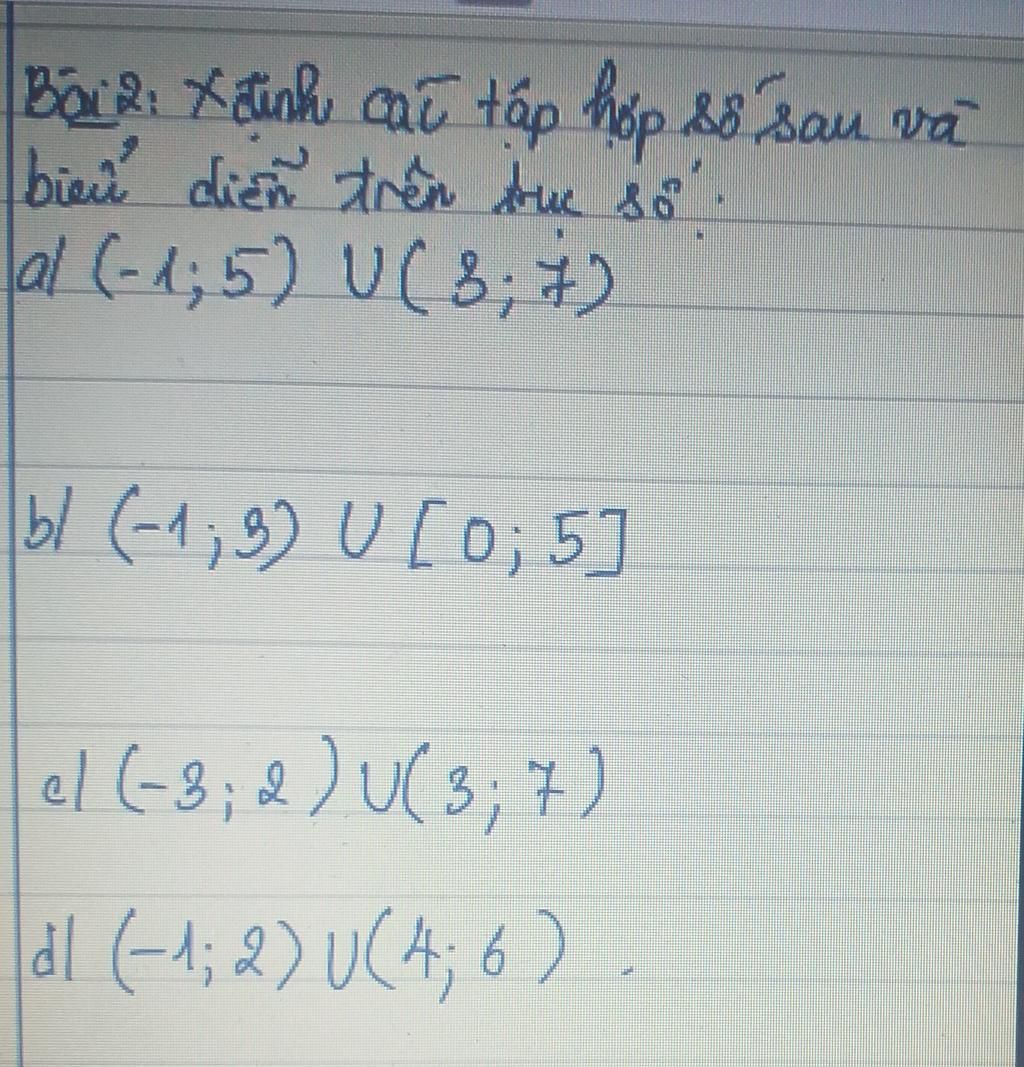 Bài 2: Xđịnh các tập hợp số sau và
biểu diễn trên trục số:
a/ (-1; 5) ∪ (3; 7)
b/ (-1; 3) ∪ [0; 5]
c/ (-3; 2) ∪ (3; 7)
d/ (-1; 2) ∪ (4; 6).